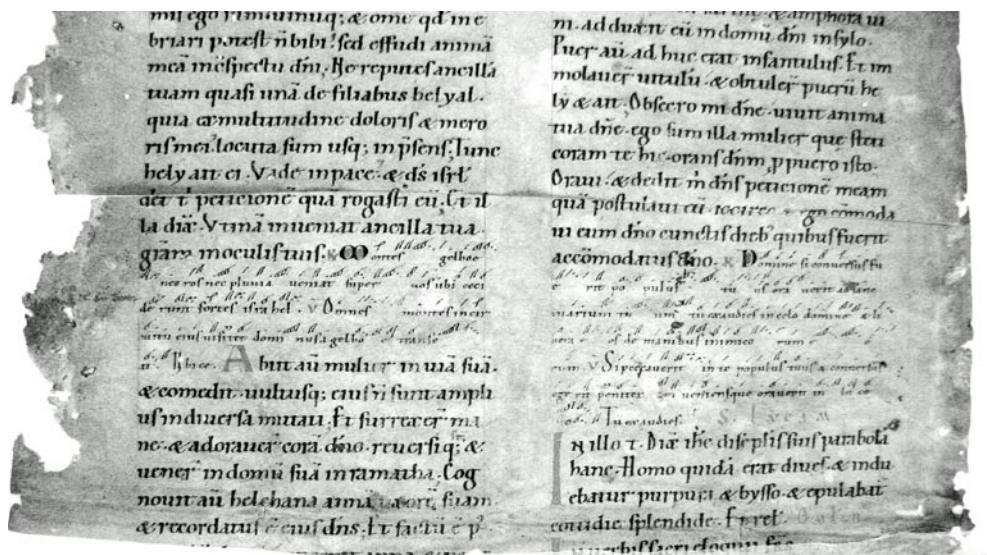 briari potest n̄ bibi. sed effudi animā
meā inc̄spectu dn̄i. Ne reputes ancillā
tuam quasi unā de filiabus belyal.
quia ex multitudine doloris & mero
ris mei. locuta sum usq; in p̄sens. Tunc
hely ait ei. Vade in pace. & ds̄ isrl̄
det t̄ peticionē quā rogasti eū. Et il
la dix̄. Vtinā inueniat ancilla tua
grām in oculis tuis. Montes gelboe
nec ros nec pluuia ueniat super uos ubi ceci
de runt fortes isra hel. v Omnes montes in cir
cuitu eius uisitet domi nus a gelboe
Vbi ce. Abiit aū mulier in uiā suā.
& comedit. uultusq; eius n̄ sunt ampli
us in diuersa mutati. Et surrexer̄ ma
ne. & adorauer̄ corā dn̄o. reuersiq; s̄
uener̄ in domū suā in ramatha. Cog
nouit aū helchana anna uxorē suam
& recordatus ē eius dn̄s. Et factū ē p̄
& amphora ui
ni. ad duxit eū in domū dn̄i in sylo.
Puer aū ad huc erat infantulus. Et im
molauer̄ uitulū. & obtuler̄ puerū he
ly & ait. Obsecro mi dn̄e. uiuit anima
tua dn̄e. ego sum illa mulier que steti
coram te hic. orans dn̄m p puero isto.
Oraui. & dedit m̄ dn̄s peticionē meam
quā postulaui eū. idcirco & ego cōmoda
ui eum dn̄o cunctis dieb; quibus fuerit
accōmodatus dn̄o. Domine si conuersus fu
e rit po pulus tu us & ora uerit ad sanc
tuarium tu um tu exaudies in celo domine & li
bera e os de manibus inimico rum
eum. v Si peccauerit in te populus tuus & conuersus
egerit peniten tiam ueniensque orauerit in loco
Tu exaudies. S. Lucam
In illo t̄. Dix̄ ihc̄ discipl̄is suis parabolā
hanc. Homo quidā erat diues. & indu
ebatur purpura & bysso. & epulabat̄
cotidie splendide. Et rel̄.